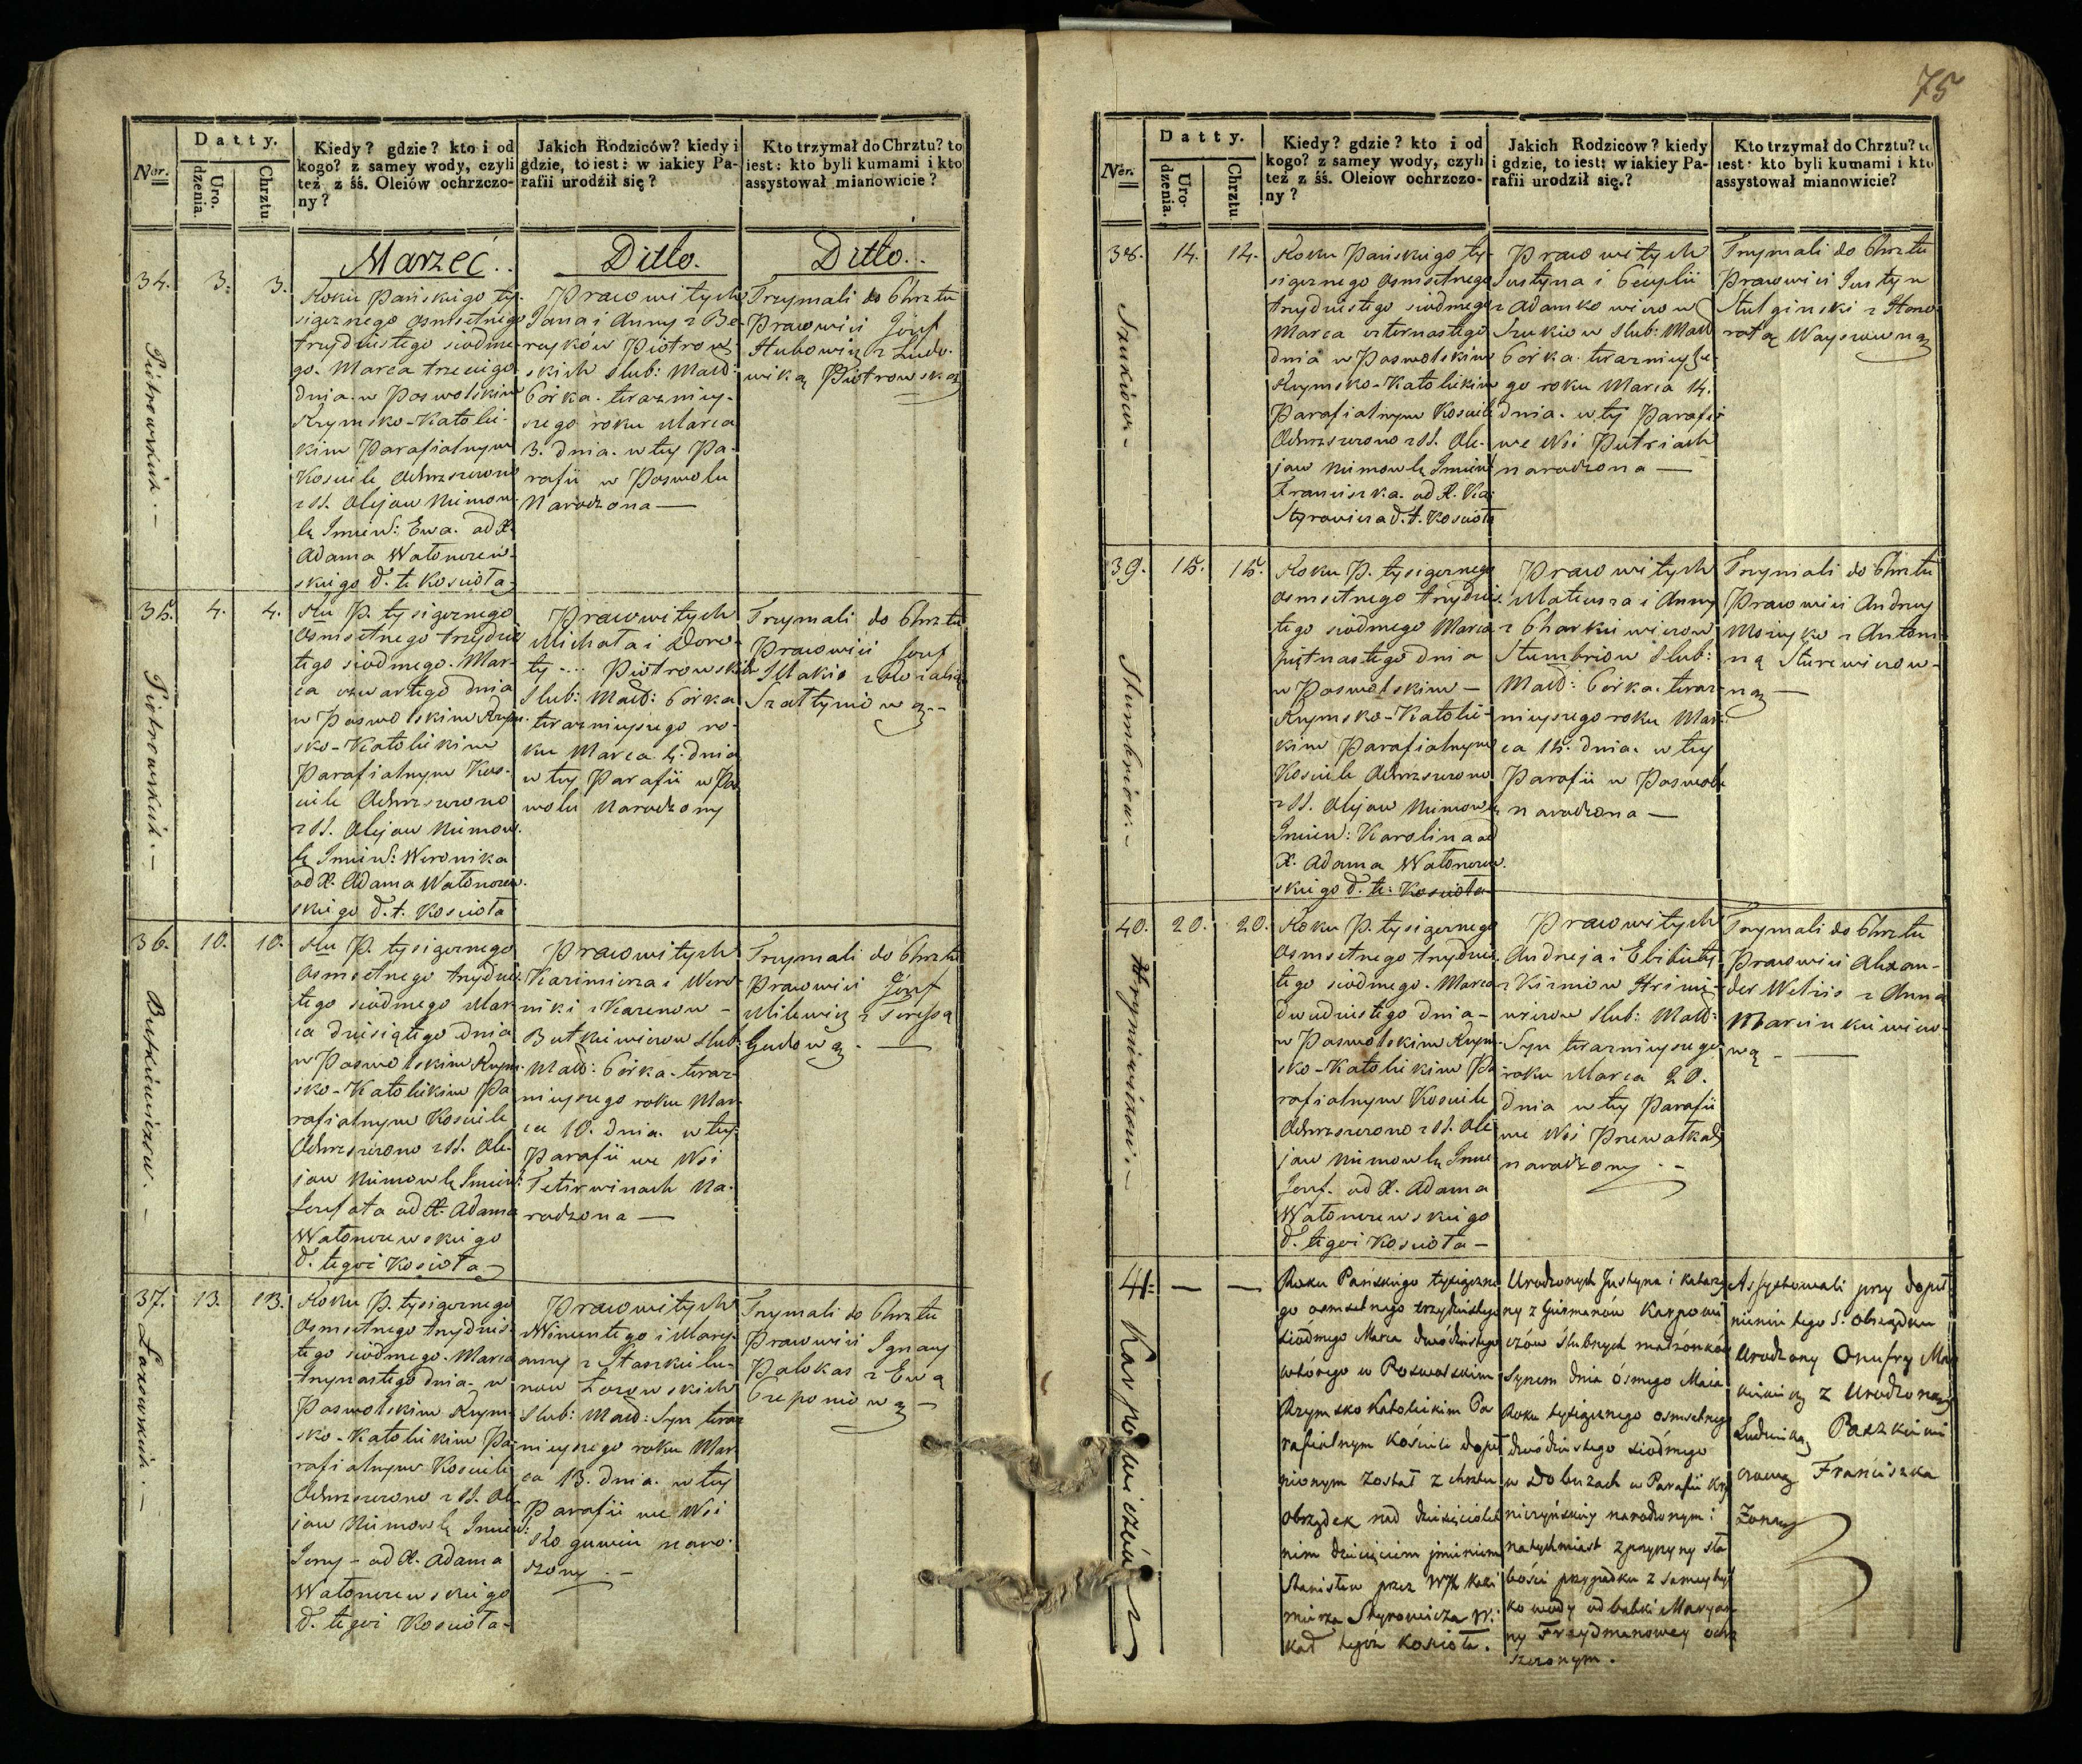 75
Datty.
Ner.
Uro-
dzenia.
Chrztu
Kiedy? gdzie? kto i od
kogo? z samey wody, czyli
też z śś. Oleiów ochrzczo-
ny?
Jakich Rodziców? kiedy i
gdzie, to iest: w iakiey Pa-
rafii urodził się?
Kto trzymał do Chrztu? to
iest: kto byli kumami i kto
assystował mianowicie?
Marzec.
Ditto.
Ditto.
34.
3.
3.
Piotrowskich.—
Roku Pańskiego ty-
sięcznego osmsetnego
trzydziestego siódme-
go. Marca trzeciego
dnia. w Poswolskim
Rzymsko-Katolic-
kim Parafialnym
Kosciele Ochrzszczono
z SS. Olejow niemow-
lę Imień: Ewa. od X.
Adama Watonczew-
skiego d. t. Kościoła
Prawowitych
Jana i Anny z Be-
reyków Piotrow-
skich Slub: Małż:
Córka. teraźniey-
szego roku Marca
3. dnia. w tey Pa-
rafii w Poswolu
Narodzona—
Trzymali do Chrztu
Prawowici Józef
Hubowicz z Ludo-
wiką Piotrowską
35.
4.
4.
Piotrowskich.—
Rku P. tysięcznego
osmsetnego trzydzies
tego siodmego. Mar-
ca czwartego dnia
w Poswolskim Rzym-
sko-Katolickim
Parafialnym Kos-
ciele Ochrzszczono
z SS. Olejow niemow-
lę Imień: Weronika
od X. Adama Watonczew-
skiego d. t. Kościoła
Prawowitych
Michała i Doro-
ty .... Piotrowskich
Slub: Małż: Córka
teraźnieyszego ro-
ku Marca 4. dnia
w tey Parafii w Pos
wolu Narodzony
Trzymali do Chrztu
Prawowici Jozef
36.
10.
10.
Butkiewiczow.—
Rku P. tysięcznego
osmsetnego trzydzies
tego siódmego Mar-
ca dziesiątego dnia
w Poswolskim Rzym-
sko-Katolickim Pa
rafialnym Kosciele
Ochrzszczono z SS. Ole-
jow niemowlę Imień:
Jozefata od X. Adama
Watonczewskiego
d. tegoż Kościoła
Prawowitych
Kazimierza i Wero-
niki z Kazenow -
Butkiewiczow Slub
Małż: Córka. teraz-
nieyszego roku Mar-
ca 10. dnia. w tey
Parafii we Wsi
Tetirwinach Na-
rodzona—
Trzymali do Chrztu
Prawowici Józef
Milewicz z Teressą
Gudową.—
37.
13.
13.
Roku P. tysięcznego
osmsetnego trzydzies-
tego siódmego. Marca
trzynastego dnia. w
Poswolskim Rzym-
sko-Katolickim Pa-
rafialnym Kosciele
Ochrzszczono z SS. Ole-
jow niemowlę Imień:
Jerzy - od X. Adama
Watonczewskiego
d. tegoż Kościoła-
Prawowitych
Wincentego i Mary-
anny z Staszkielu-
now Łozowskich
Slub: Małż: Syn teraz
nieyszego roku Mar
ca 13. dnia. w tey
Parafii we Wsi
Roguwiu naro-
dzony.—
Trzymali do Chrztu
Prawowici Ignacy
Palokas z Ewą
Czeponiową—
Datty.
Ner.
Uro-
dzenia.
Chrztu
Kiedy? gdzie? kto i od
kogo? z samey wody, czyli
też z śś. Oleiow ochrzczo-
ny?
Jakich Rodziców? kiedy
i gdzie, to iest: w iakiey Pa-
rafii urodził się.?
Kto trzymał do Chrztu? to
iest: kto byli kumami i kto
assystował mianowicie?
38.
14.
14.
Szukiow—
Roku Pańskiego ty-
sięcznego osmsetnego
trzydziestego siódmego
Marca czternastego
dnia w Poswolskim
Rzymsko-Katolickim
Parafialnym Kosciele
Ochrzszczono z SS. Ole-
jow niemowlę Imień
Franciszka. od X. Ka.
Styrowicza d. t. Kościoła
Prawowitych
Justyna i Cecylii
z Adamkowiczow
Szukiow Slub: Małż
Córka. teraznieysze-
go roku Marca 14.
dnia. w tey Parafii
we Wsi Putriach
narodzona—
Trzymali do Chrztu
Prawowici Justyn
Stulginski z Hono-
ratą Wayszwną
39.
15.
15.
Stumbriow.—
Roku P. tysięcznego
osmsetnego trzydzies
tego siódmego Marca
piętnastego dnia
w Poswolskim—
Rzymsko-Katolic-
kim Parafialnym
Kosciele Ochrzszczono
z SS. Olejow niemowlę
Imień: Karolina od
X. Adama Watonczew-
skiego d. t: Kościoła
Prawowitych
Mateusza i Anny
z Charkiewiczow
Stumbriow Slub:
Małż: Córka. teraz-
nieyszego roku Mar-
ca 15. dnia. w tey
Parafii w Poswolu
narodzona—
Trzymali do Chrztu
Prawowici Andrzey
Możeyko z Antoni-
ną Sturewiczow-
ną—
40.
20.
20.
Hryniewiczow.—
Roku P. tysięcznego
osmsetnego trzydzies
tego siódmego. Marca
dwudziestego dnia-
w Poswolskim Rzym-
sko-Katolickim Pa
rafialnym Kosciele
Ochrzszczono z SS. Ole
jow niemowlę Imie
Jozef. od X. Adama
Watonczewskiego
d. tegoż Kościoła—
Prawowitych
Syn teraznieyszego
roku Marca 20.
dnia w tey Parafii
we Wsi Przewalkach
narodzony.—
Trzymali do Chrztu
Prawowici Alexan-
der Welzis z Anną
Marcinkiewiczo-
wą.—
41.
—
—
Karpowiczów
Roku Pańskiego tysiączne
go osmsetnego trzydziestego
siódmego Marca dwódziestego
wtórego w Poswolskim
Rzymsko Katolickim Pa
rafialnym Kościele dopeł
nionym został z chrztu
obrządek nad dziesięciolet
nim dziecięciem jmieniem
Stanisław przez WJX Kazi
mierza Styrowicza W.
kad tegoż Kościoła.
Urodzonych Justyna i Katarzy
ny z Giermanów Karpowi
czów ślubnych małżonków
Synem dnia ósmego Maia
Roku tysiącznego osmsetnego
dwódziestego siódmego
w Dobuzach w Parafii Kry
niczyńskiey narodzonym i
natychmiast z przyczyny sła
bości przypadku z samey tyl
ko wody od babki Maryan
ny Frzydmanowey och
szczonym.
Assystowali przy dopeł
nieniu tego S. obrządku
Urodzony Onufry Mac
kiewicz z Urodzoną
Ludwiką Paszkiewi
czową Franciszka
Żoną